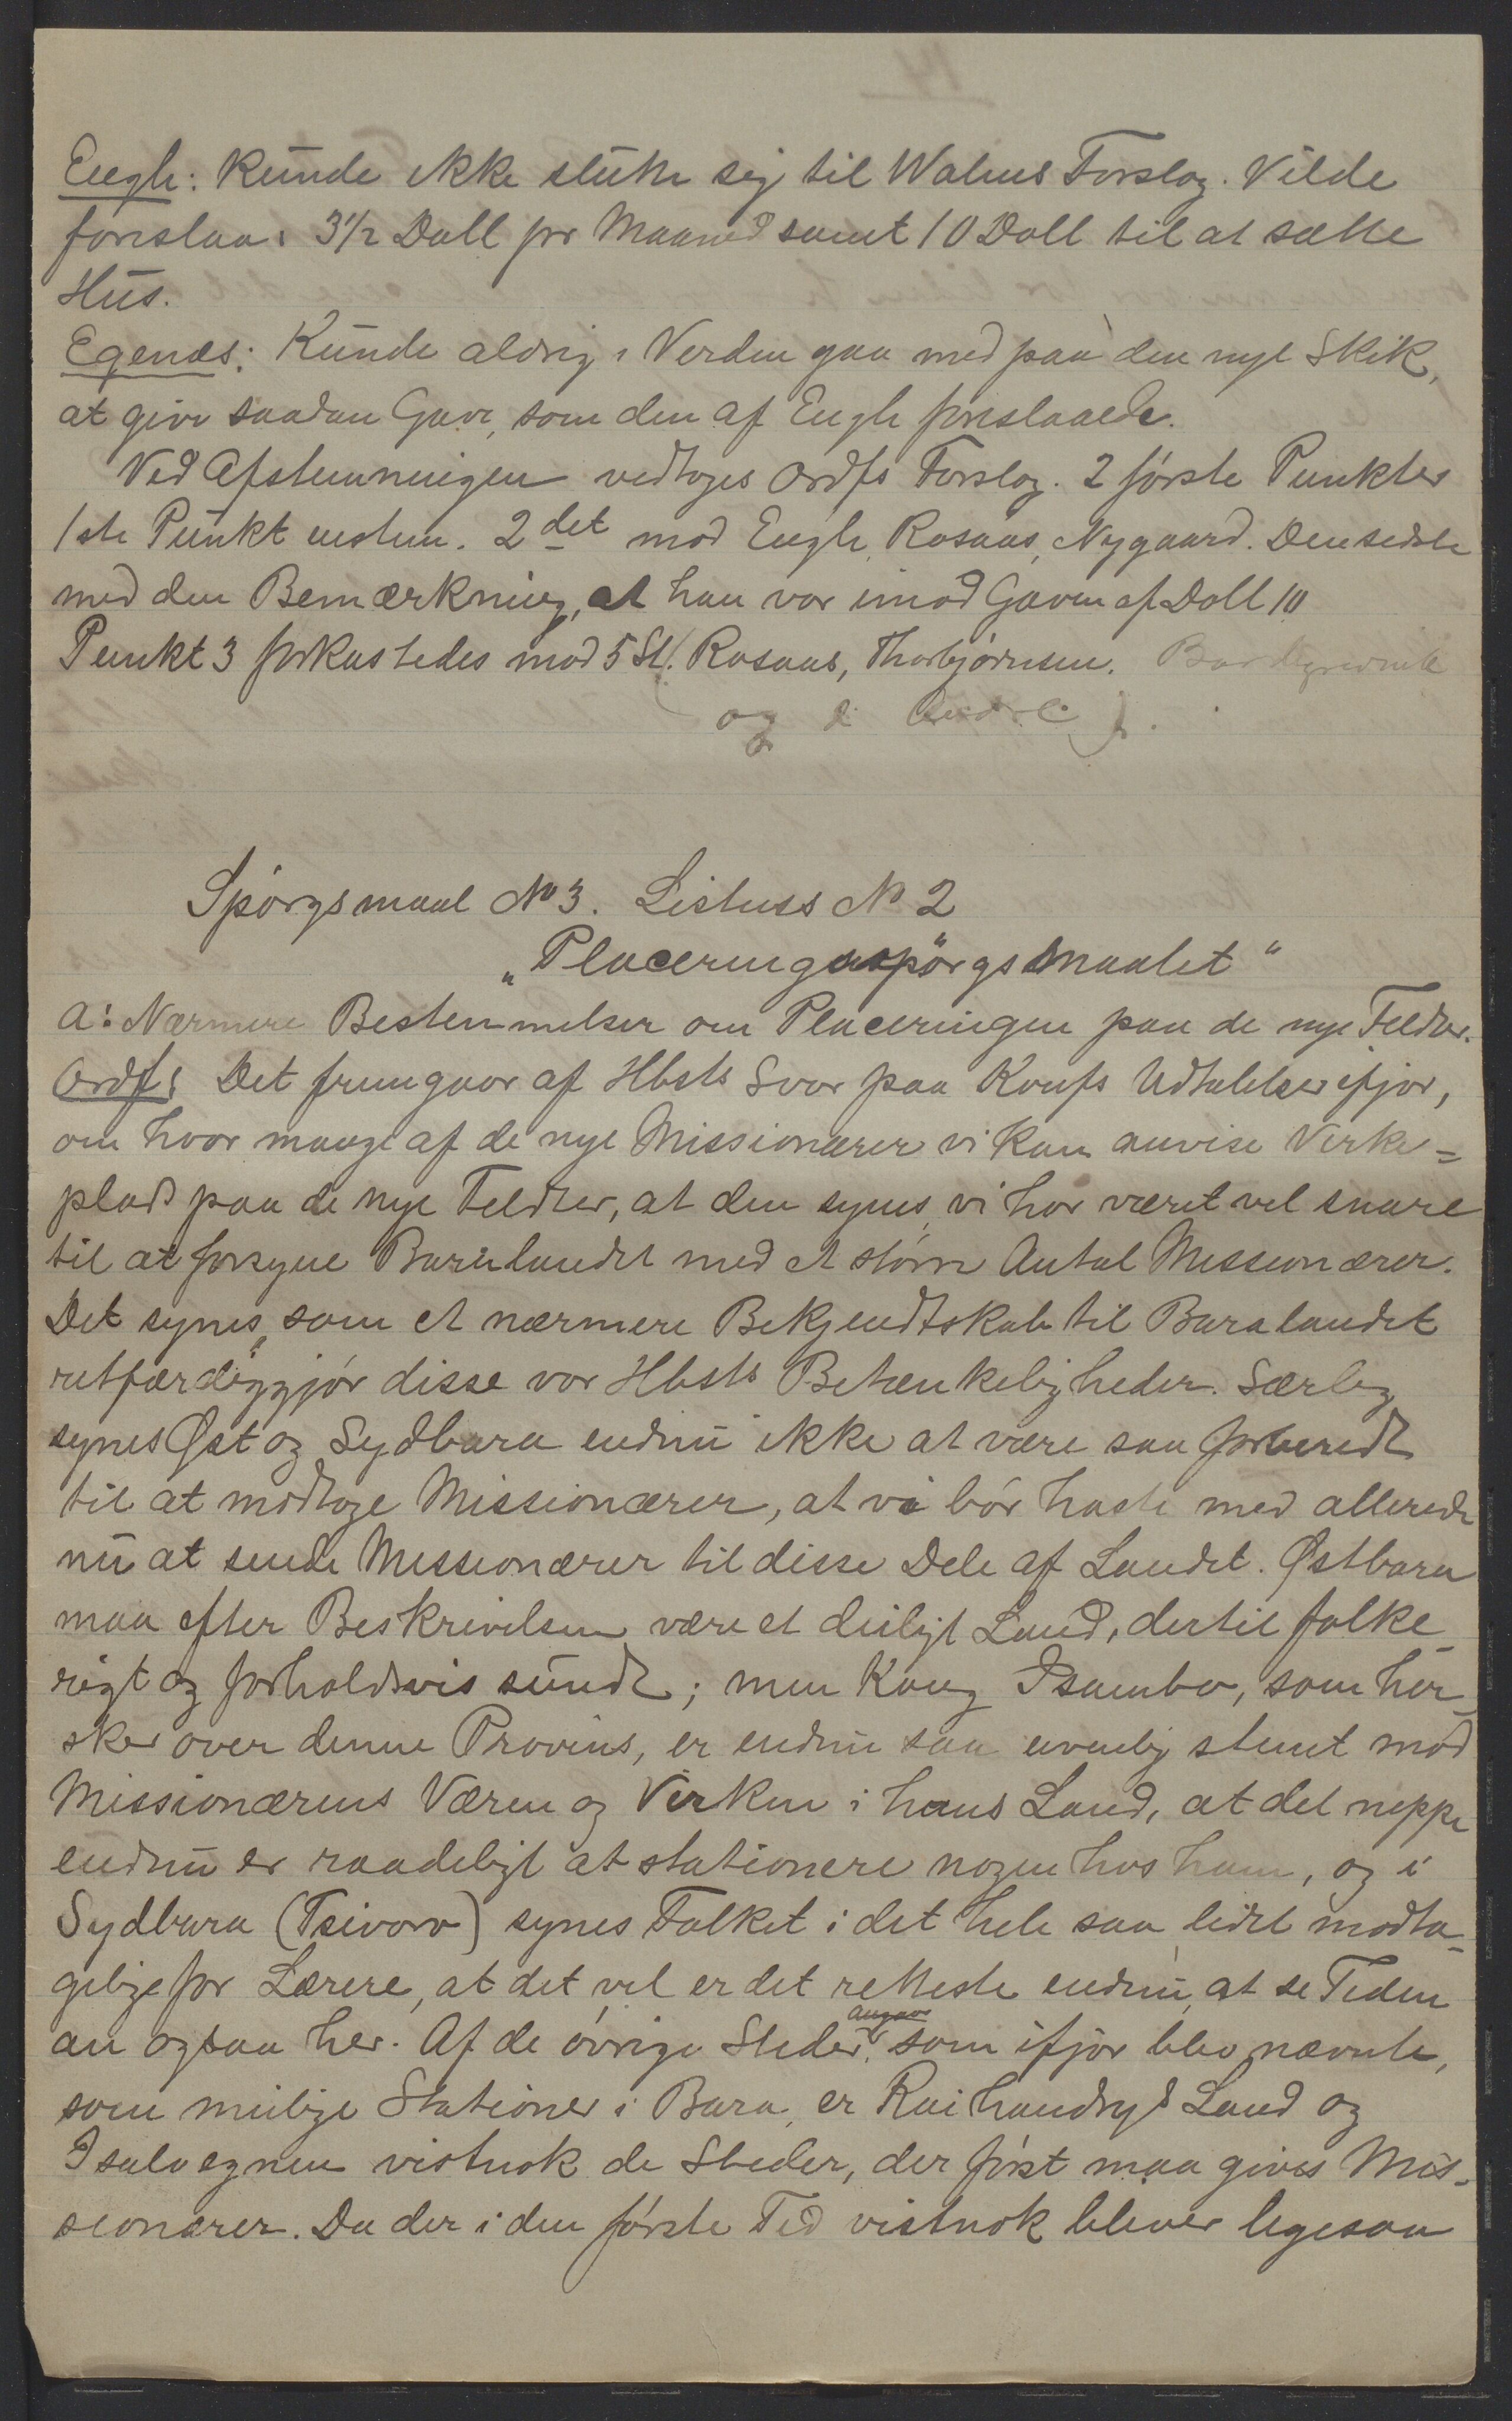 Engh: Kunde ikke slutte sig til Walens Forslag. Vilde
foreslaa: 3 1/2 Doll pr Maaned samt 10 Doll til at sætte
Hus.
Egenæs: Kunde aldrig i Verden gaa med paa den nye Skik,
at give saadan Gave, som den af Engh foreslaaede.
Ved Afstemningen vedtoges Ordfs Forslag. 2 første Punkter
1ste Punkt enstem. 2det mod Engh, Rosaas, Nygaard. Den sidste
med den Bemærkning, at han var imod Gaven af Doll 10
Punkt 3 forkastedes mod 5 St. (Rosaas, Thorbjørnsen.
og
Spørgsmaal No 3. Listuss No 2
„Placeringsspørgsmaalet“
a: Nærmere Bestemmelser om Placeringen paa de nye Feldter.
Ordf: Det fremgaar af Hbsts Svar paa Konfs Udtalelser ifjor,
om hvor mange af de nye Missionærer vi kan anvise Virke=
plads paa de nye Feldter, at den synes, vi har været vel snare
til at forsyne Baralandet med et større Antal Missionærer.
Det synes, som et nærmere Bekjendtskab til Baralandet
retfærdiggjør disse vor Hbsts Betænkeligheder. Særlig
synes Øst og Sydbara endnu ikke at være saa forberedt
til at modtage Missionærer, at vi bør haste med allerede
nu at sende Missionærer til disse Dele af Landet. Østbara
maa efter Beskrivelsen være et deiligt Land, dertil folke
rigt og forholdsvis sundt; men Kong Isambo, som her
sker over denne Provins, er endnu saa uvenlig stemt mod
Missionærens Væren og Virken i hans Land, at det neppe
endnu er raadeligt at stationere nogen hos ham, og i
Sydbara (Tsivoro) synes Folket i det hele saa lidet modta-
gelige for Lærere, at det vel er det retteste endnu, at se Tiden
an ogsaa her. Af de øvrige Steder, angaar som ifjor blev nævnte,
som mulige Stationer i Bara, er Raihandrys Land og
Isaloegnen vistnok de Steder, der først maa gives Mis-
sionærer. Da der i den første Tid vistnok bliver ligesaa